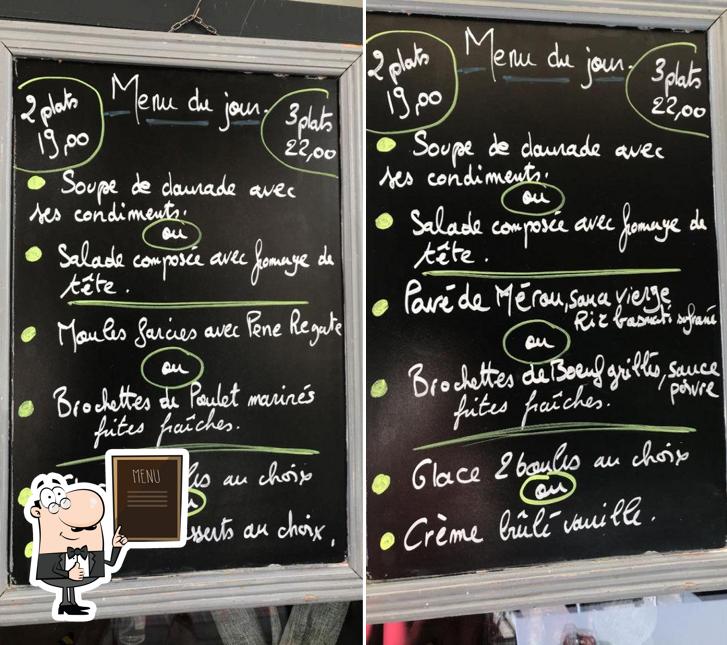 2 plats
19,00
Menu du jour.
3 plats
22,00
Soupe de daurade avec
ses condiments.
ou
Salade composée avec fromage de
tête.
Moules farcies avec Pene Regate
ou
Brochettes de Poulet marinés
frites fraîches.
au choix
MENU
au choix.
2 plats
19,00
Menu du jour.
3 plats
22,00
Soupe de daurade avec
ses condiments.
ou
Salade composée avec fromage de
tête.
Pavé de Mérou, sauce vierge
Riz basmati safrané
ou
Brochettes de Boeuf grillés, sauce
poivre
frites fraîches.
Glace 2 boules au choix
ou
Crème brûlé vanille.